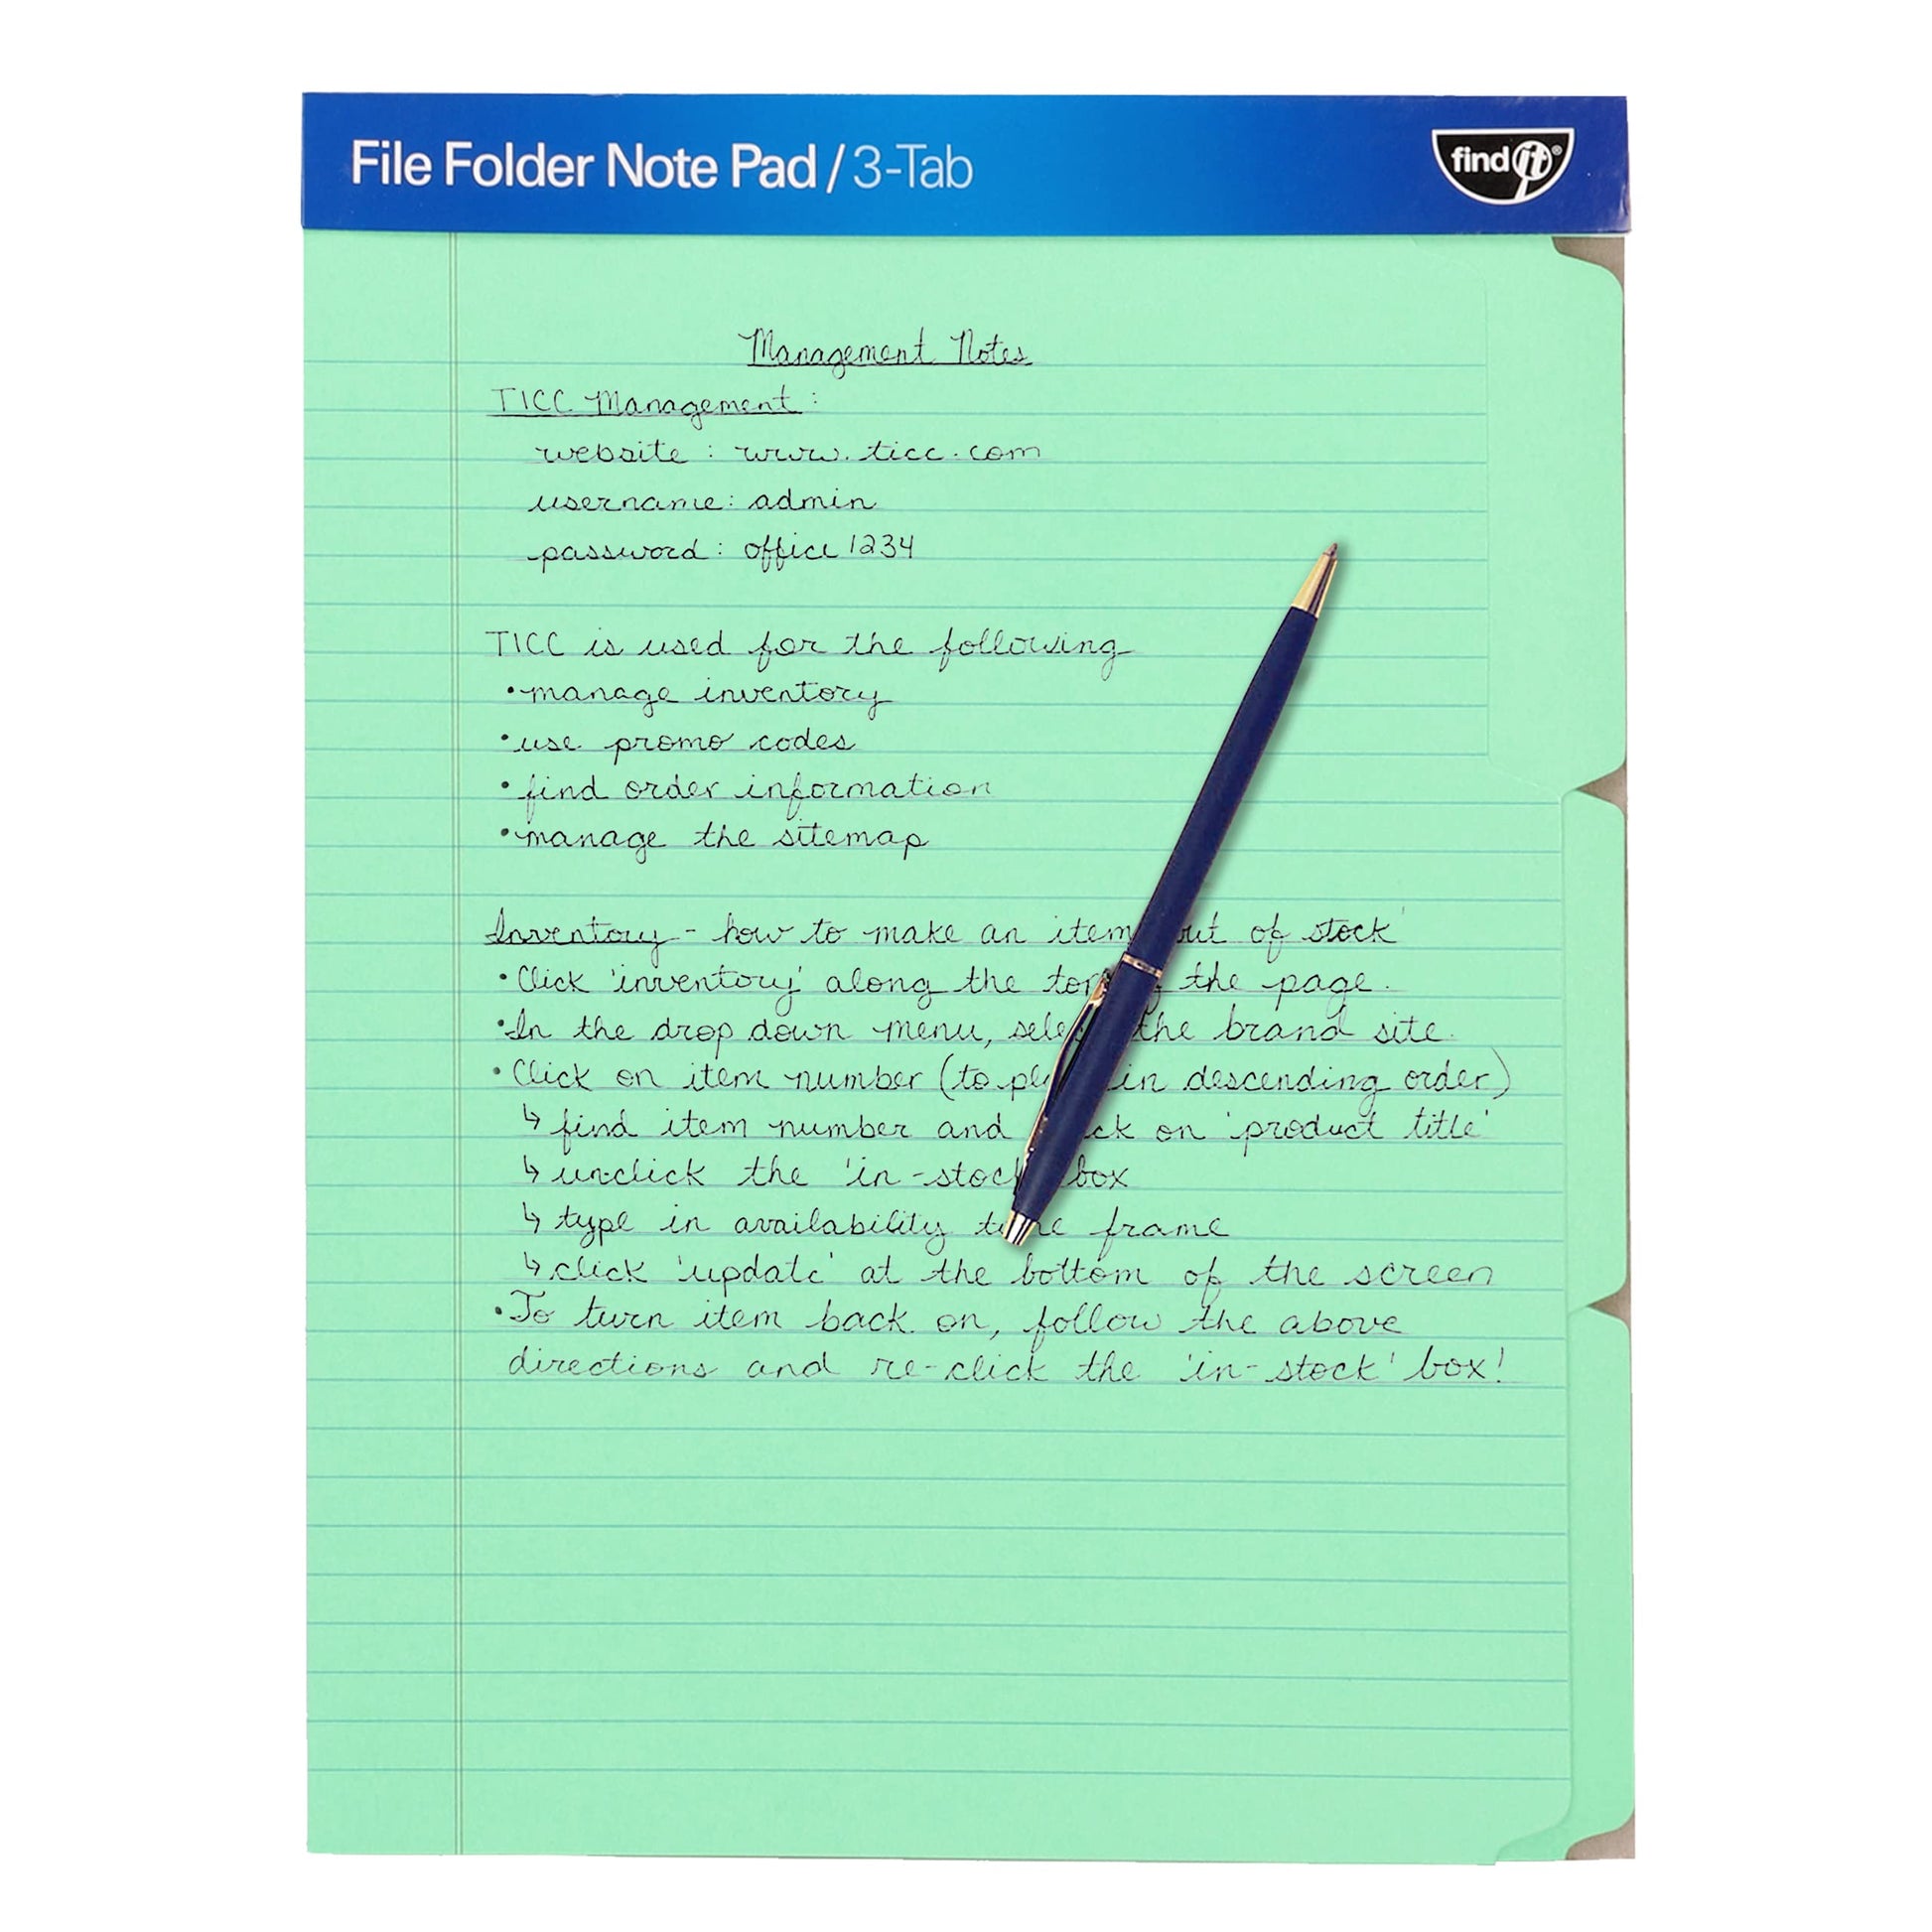 File Folder Note Pad / 3-Tab
find it®
Management Notes
TICC Management :
website : www.ticc.com
username: admin
password : office 1234
TICC is used for the following
•manage inventory
•use promo codes
•find order information
•manage the sitemap
Inventory - how to make an item out of stock'
•Click 'inventory' along the the page.
•In the drop down menu, the brand site.
•Click on item number (to in descending order)
↳ find item number and on 'product title'
↳ unclick the 'in-stock box
↳ type in availability frame
↳ click 'update' at the bottom of the screen
•To turn item back on, follow the above
directions and re-click the 'in-stock' box!